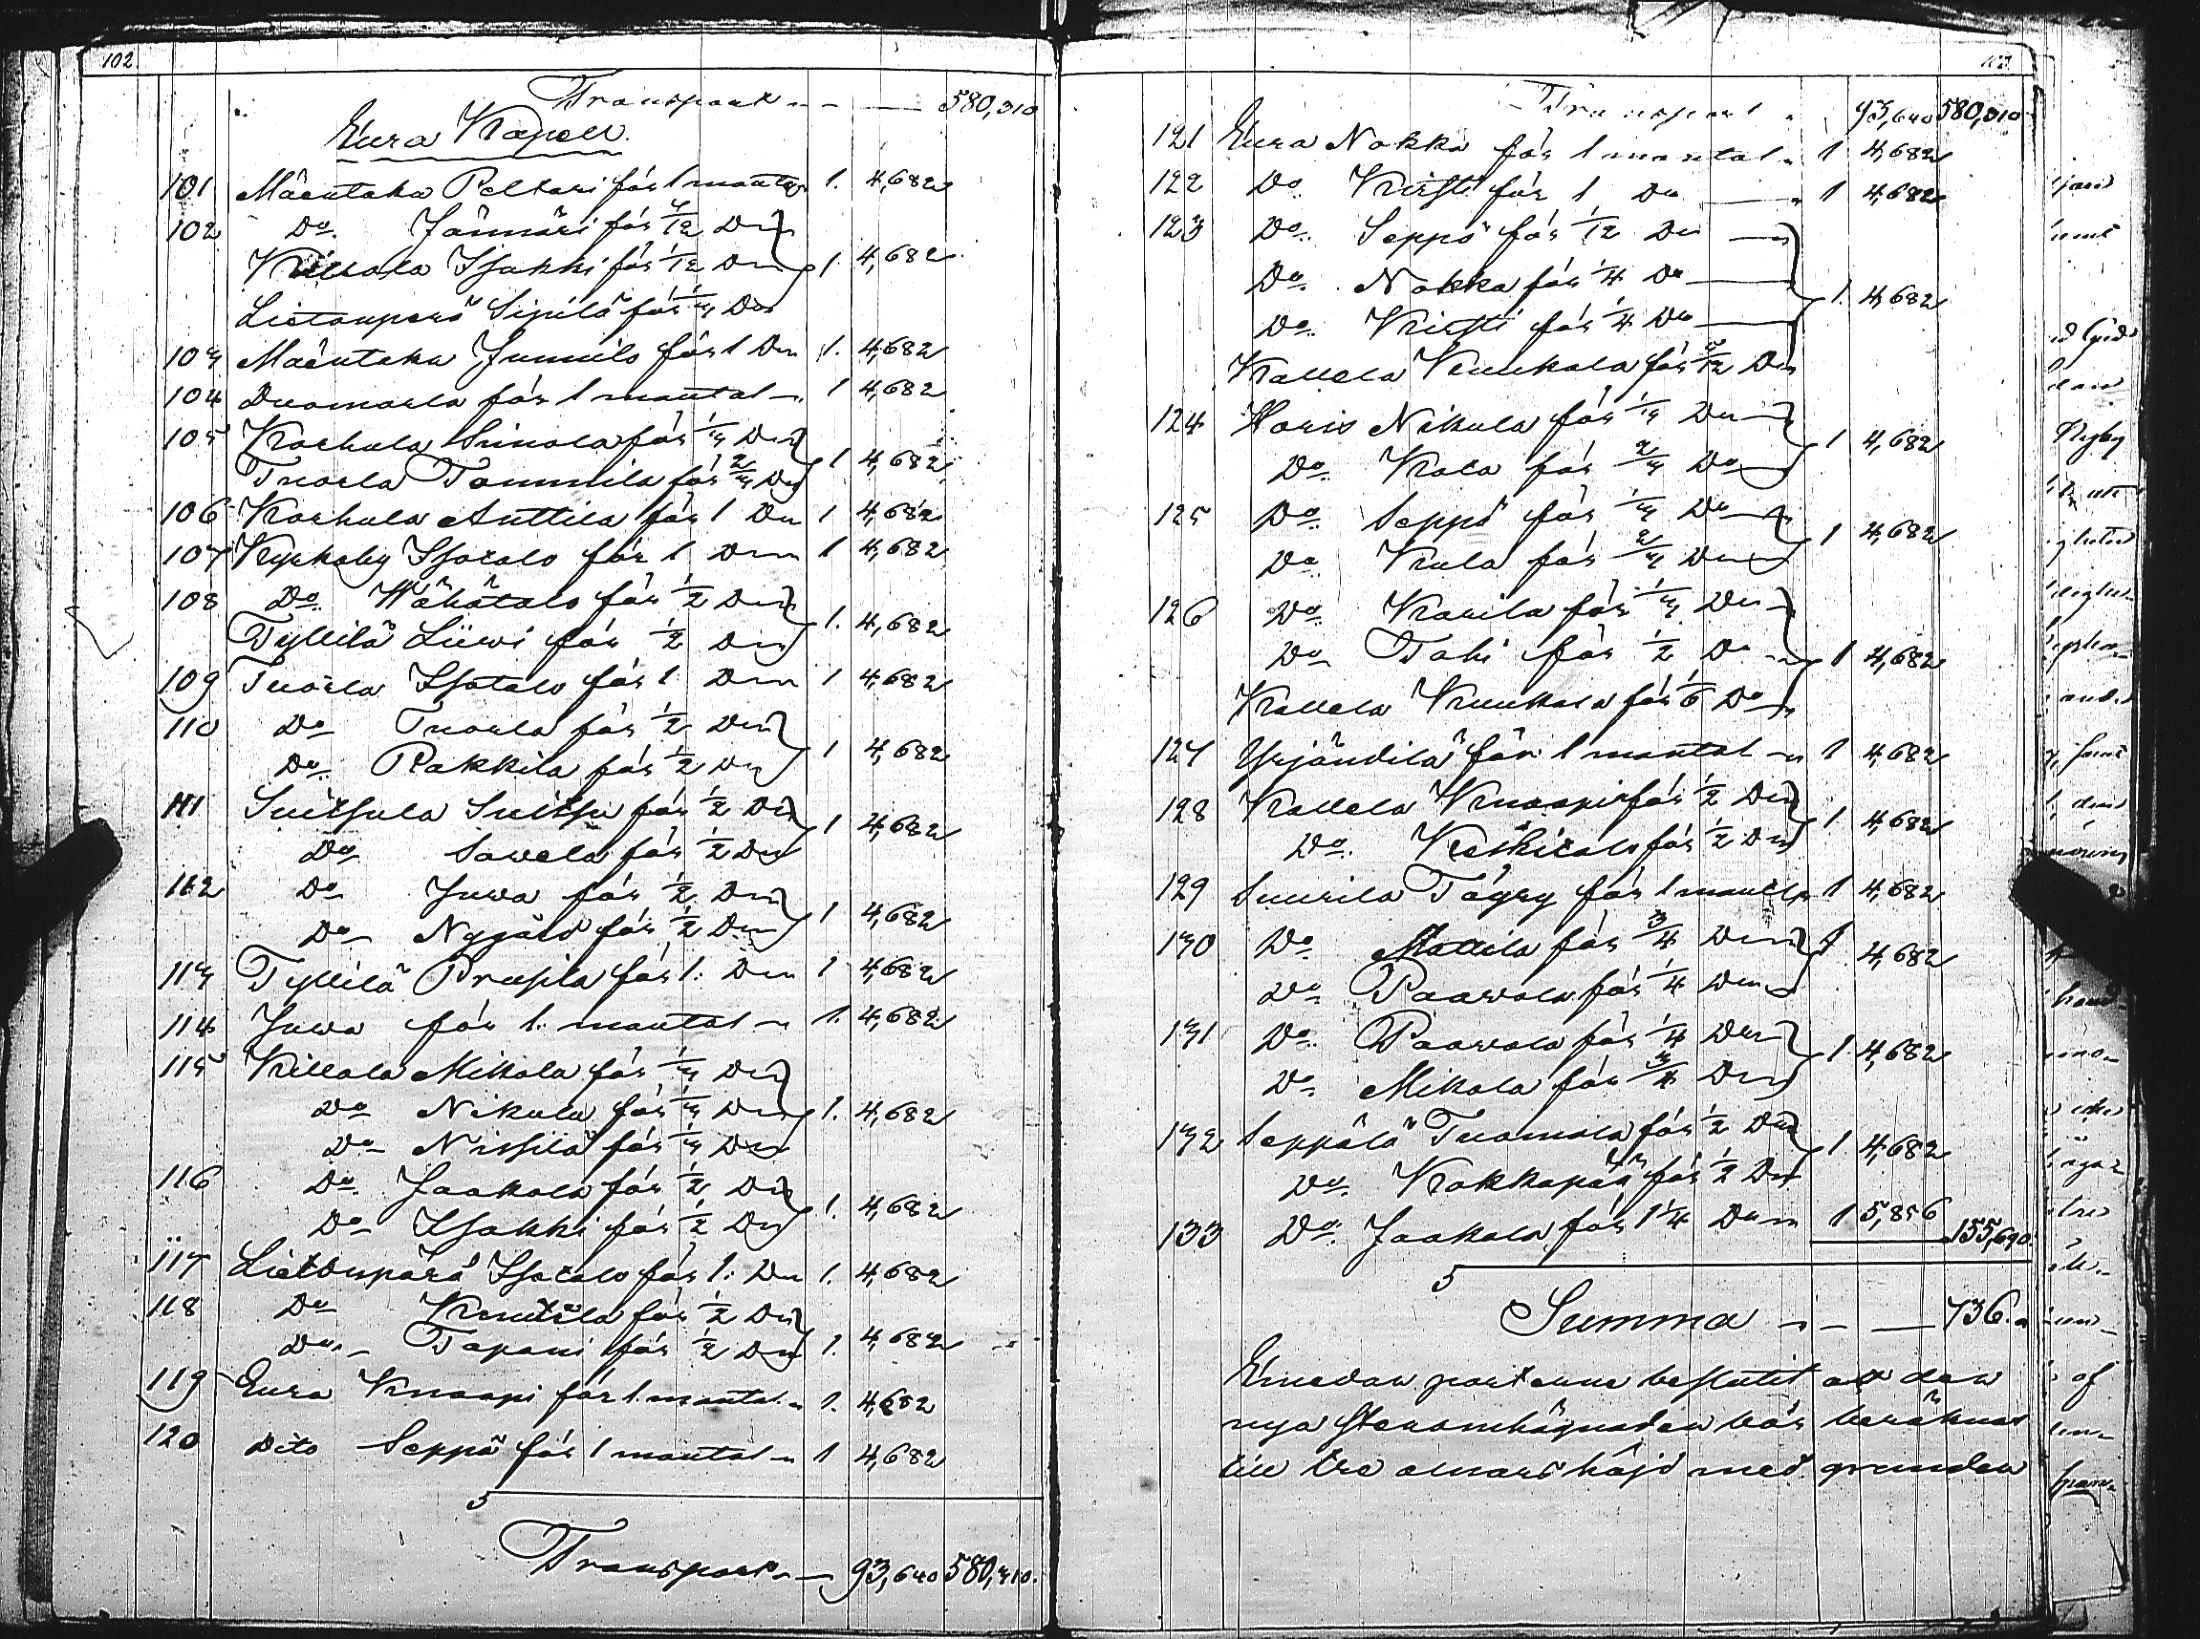 102
Transport 580,310
Eura Kapell.
101 Mäentaka Peltari för 1 mantal 1. 4,682
102 Do Jännäri för 4/12 Do
Killala Isjakki för 1/12 Do 1. 4,682
Lietanperä Sipilä för 1/3 Do
103 Mäentaka Junnila för 1 Do 1. 4,682
104 Duomarla för 1 mantal 1 4,682
105 Korhula Sinnala för 1/3 Do
Tuorla Tommila för 2/3 Do 1 4,682
106 Korhula Anttila för 1 Do 1 4,682
107 Kyrkoby Isotalo för 1 Do 1 4,682
108 Do Wähätalo för 1/2 Do
Tyllilä Liewi för 1/2 Do 1. 4,682
109 Tuorla Isotalo för 1 Do 1 4,682
110 Do Tuorla för 1/2 Do
Do Rakkila för 1/2 Do 1 4,682
111 Suitsula Suitsu för 1/2 Do
Do Sawela för 1/2 Do 1 4,682
112 Do Juwa för 1/2 Do
Do Nygård för 1/2 Do 1 4,682
113 Tyllilä Prusila för 1. Do 1 4,682
114 Juwa för 1. mantal 1. 4,682
115 Killala Mikola för 1/3 Do
Do Nikula för 1/3 Do 1. 4,682
Do Nissilä för 1/3 Do
116 Do Jaakola för 1/2 Do
Do Isjakki för 1/2 Do 1. 4,682
117 Lietanperä Isotalo för 1. Do 1. 4,682
118 Do Knutila för 1/2 Do
Do Tapani för 1/2 Do 1. 4,682
119 Eura Knaapi för 1. mantal 1. 4,682
120 Dito Seppä för 1 mantal 1 4,682
Transport 93,640 580,310.
103
Transport 93,640 580,310
121 Eura Nokka för 1 mantal 1 4,682
122 Do Kirsti för 1 Do 1 4,682
123 Do Seppä för 1/12 Do
Do Nokka för 1/4 Do
Do Kirsti för 1/4 Do 1. 4,682
Kallela Kuukala för 5/12 Do
124 Woris Nikula för 1/3 Do
Do Kala för 2/3 Do 1 4,682
125 Do Seppä för 1/3 Do
Do Kula för 2/3 Do 1 4,682
126 Do Karila för 1/3 Do
Do Tahi för 1/2 Do 1 4,682
Kallela Kuukala för 1/6 Do
127 Yrjändilä för 1 mantal 1 4,682
128 Kallela Knaapi för 1/2 Do
Do Keskitalo för 1/2 Do 1 4,682
129 Suurila Töyry för 1 mantal 1 4,682
130 Do Mattila för 3/4 Do 1
Do Paawola för 1/4 Do 4,682
131 Do Paawola för 1/4 Do
Do Mikola för 3/4 Do 1 4,682
132 Seppälä Tuomola för 1/2 Do
Do Kokkapää för 1/2 Do 1 4,682
133 Do Jaakola för 1 1/4 Do 1 5,856 155,690.
Summa 736.
Emedan parterne beslutit att den
nya stenomhägnaden bör beräknas
till tre alnars höjd med grunden